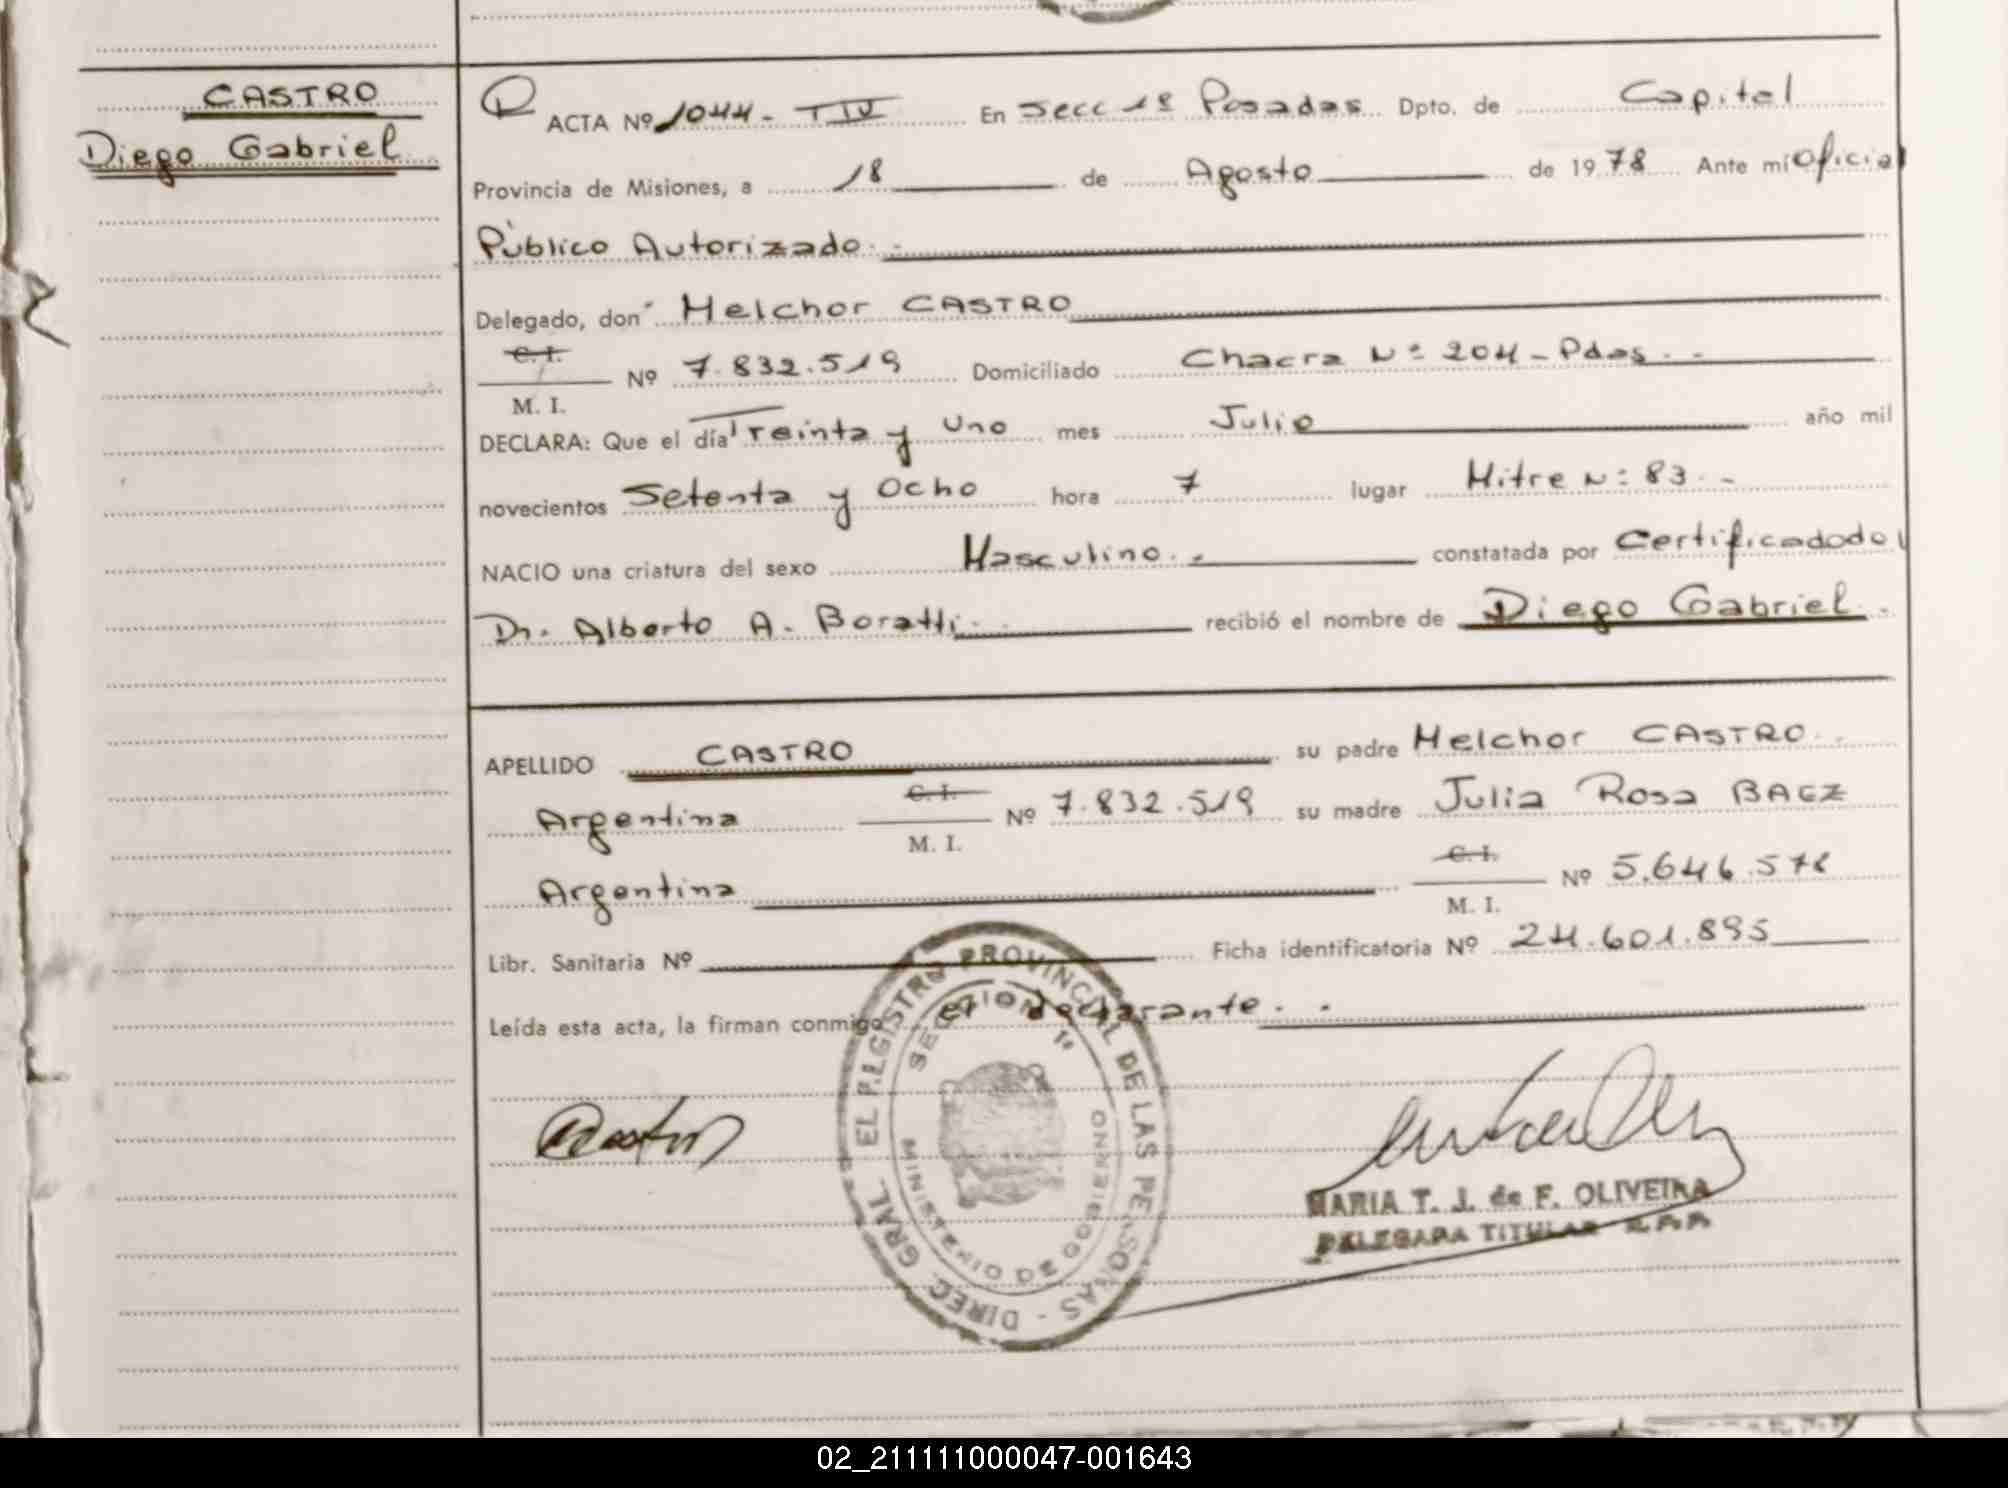 CASTRO
Diego Gabriel
ACTA Nº 1044 - T IV En Secc 1º Posadas Dpto. de Capital
Provincia de Misiones, a 18 de Agosto de 1978 Ante mí Oficial
Público Autorizado.-
Delegado, don Melchor CASTRO
C. I.
M. I. Nº 7.832.519 Domiciliado Chacra Nº 204 - Pdas.-
DECLARA: Que el día Treinta y Uno mes Julio año mil
novecientos Setenta y Ocho hora 7 lugar Mitre Nº 83.-
NACIO una criatura del sexo Masculino.- constatada por Certificadodol
Dr. Alberto A. Boratti.- recibió el nombre de Diego Gabriel.-
APELLIDO CASTRO su padre Melchor CASTRO.-
Argentina C. I. M. I. Nº 7.832.519 su madre Julia Rosa BAEZ
Argentina C. I. M. I. Nº 5.646.578
Libr. Sanitaria Nº Ficha identificatoria Nº 24.601.895
Leída esta acta, la firman conmigo el declarante.-
DIREC. GRAL. EL REGISTRO PROVINCIAL DE LAS PERSONAS -
SECCION 1º
MINISTERIO DE GOBIERNO
MARIA T. J. de F. OLIVEIRA
DELEGADA TITULAR
02_211111000047-001643